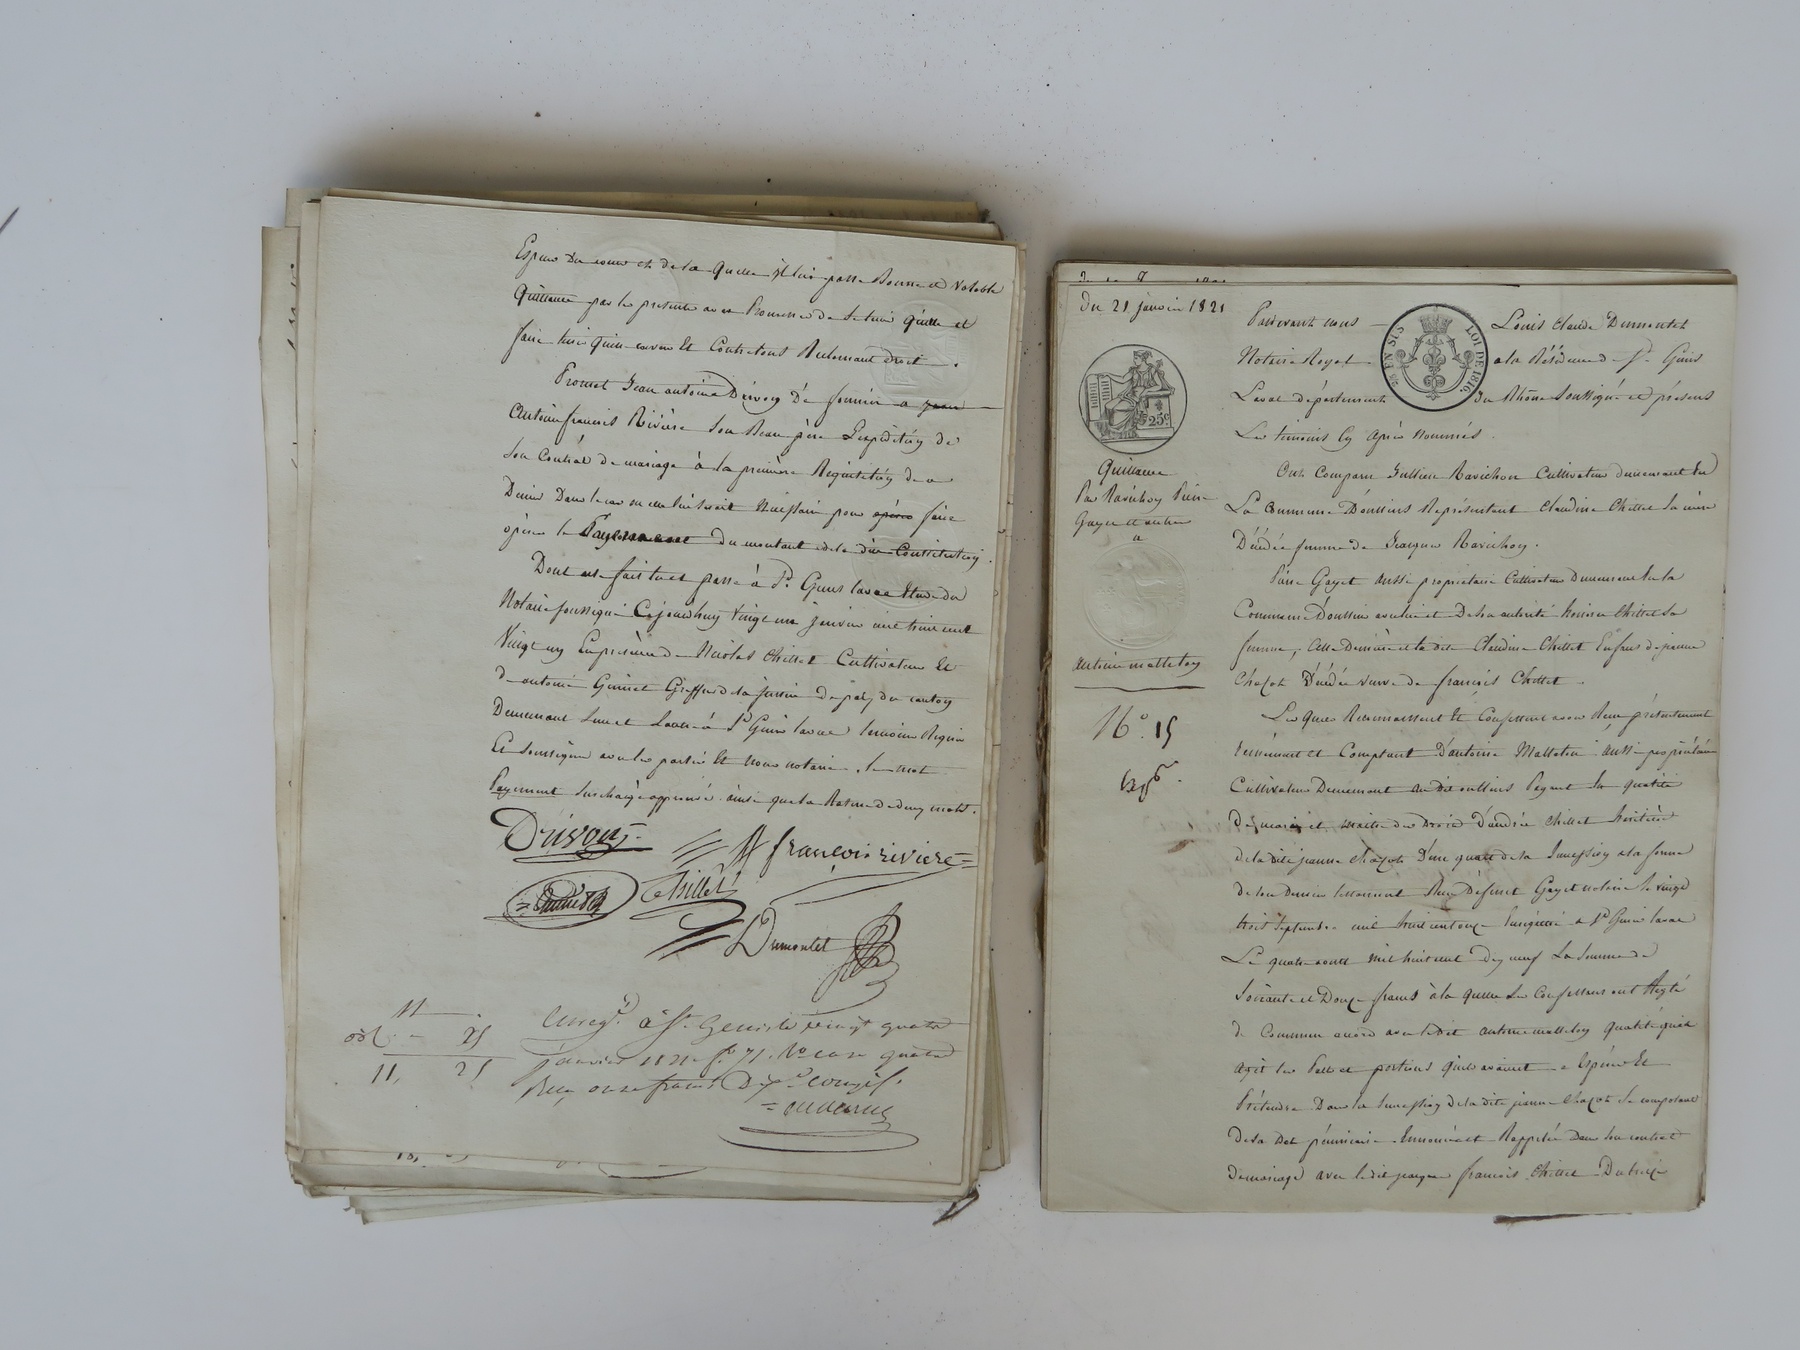 Espèces du cours et de la quelle il lui passe Bonne et Valable
Quittance par les presentes avec Promesse de le tenir quitte et
faire tenir quitte envers Et Contre tous Reclamant droit.
Promet Jean antoine Drivon De fournir a
antoine françois Rivière son Beau père L'expédition de
son Contrat de mariage à la première Requisition de ce
Dernier Dans le cas ou elle lui serait Nécessaire pour faire
opérer le Payement du montant de la dite Constitution.
Dont acte fait lu et passé à St. Genis laval Etude du
Notaire soussigné Cejourdhuy Vingt un janvier mil huit cent
Vingt un En présence de Nicolas Chillet Cultivateur Et
d'antoine Greffier de la justice de paix du canton
Demeurant l'un et l'autre à St Genis laval témoins Requis
Et soussignés avec les parties Et nous notaire, le mot
Payement surchargé approuvé ainsi que la Rature de deux mots.
Drivon
A françois riviere
Chillet
Dumontet
11
25
11, 25
Enreg. à St. Genis le vingt quatre
janvier 1821 f° 71. V° case quatre
Reçu onze francs Dix C. compris.
Du 21 janvier 1821
Pardevant nous Louis Claude Dumontet
Notaire Royal a la Résidence de St. Genis
Laval département du Rhône soussigné et présens
Les témoins Cy après nommés.
EN SUS
LOI DE 1816.
25c.
Quittance
Par Ravichon Pierre
Gayet et autres
a
antoine malleton
N°. 15
Ont Comparu Ravichon Cultivateur demeurant En
La Commune D'oullins Représentant Claudine Chillet sa mère
Décédée femme de Ravichon.
Pierre Gayet aussi propriétaire Cultivateur Demeurant En la
Commune D'oullins Chillet sa
femme, Cette Dernière et la dite Claudine Chillet Enfans de jeanne
Chazot Décédée veuve de françois Chillet.
Les quels Reconnaissent Et Confessent avoir Reçu présentement
Réellement et Comptant D'antoine Malleton aussi propriétaire
Cultivateur Demeurant au dit oullins Payant En qualité
De mari et maître des Droits D'andrée Chillet héritière
de la dite jeanne Chazot D'un quart de la Succession a la forme
de son Dernier testament Reçu Défunt Gayet notaire le vingt
trois Septembre mil huit cent onze Enregistré a St Genis laval
Le quatre août mil huit cent dix neuf La Somme de
Soixante et Douze francs à la quelle Les Confessans ont Réglé
de Commun accord avec le dit antoine malleton
agit les Parts et portions qu'ils avaient a Espérer Et
Prétendre Dans la Succession de la dite jeanne Chazot Se composant
de sa Dot pécuniaire Enoncée et Rappelée Dans son contrat
de mariage avec le dit françois Chillet